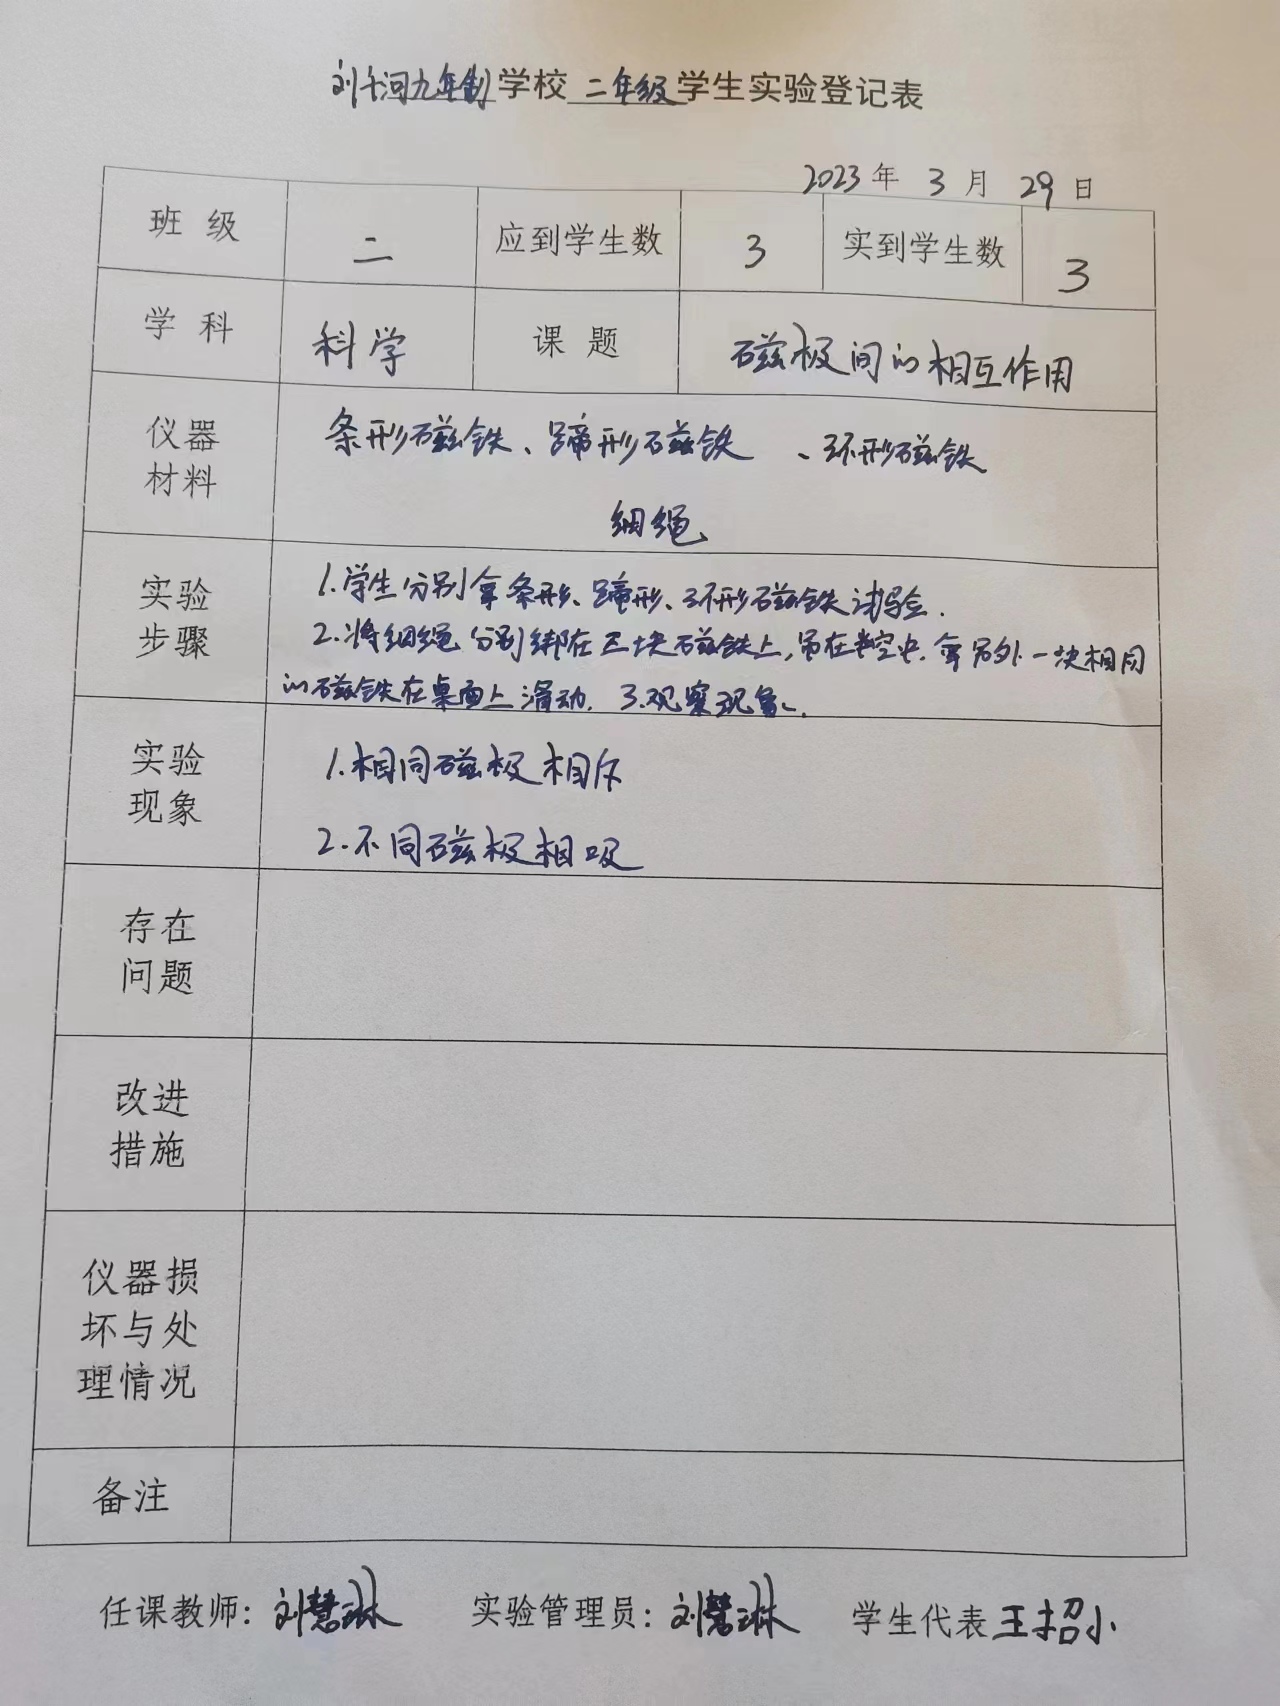 刘千河九年制学校 二年级 学生实验登记表
2023年 3月 29日
班级 二 应到学生数 3 实到学生数 3
学科 科学 课题 磁极间的相互作用
仪器材料 条形磁铁、蹄形磁铁、环形磁铁
细绳
实验步骤 1.学生分别拿条形、蹄形、环形磁铁试验.
2.将细绳分别绑在三块磁铁上,吊在半空中,拿另外一块相同
的磁铁在桌面上滑动. 3.观察现象.
实验现象 1.相同磁极相斥
2.不同磁极相吸
存在问题
改进措施
仪器损坏与处理情况
备注
任课教师:刘慧琳 实验管理员:刘慧琳 学生代表 王招小